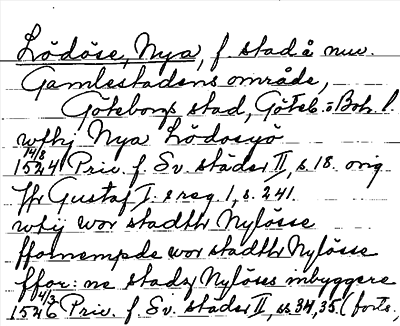 Lödöse, Nya, f. stad å nuv.
Gamlestadens område,
Göteborgs stad, Göteb. o Boh. l.
wthj Nya Lödosyö
14/8 1524 Priv. f. Sv. städer II, s. 18. orig
ffr Gustaf I:s reg. 1, s. 241.
wtij wor stadh Nylösse
ffornempde wor stadh Nylösse
ffor: ne stadz Nylöses inbyggere
4/3 1546 Priv. f. Sv. städer II, ss 34, 35. (forts.,